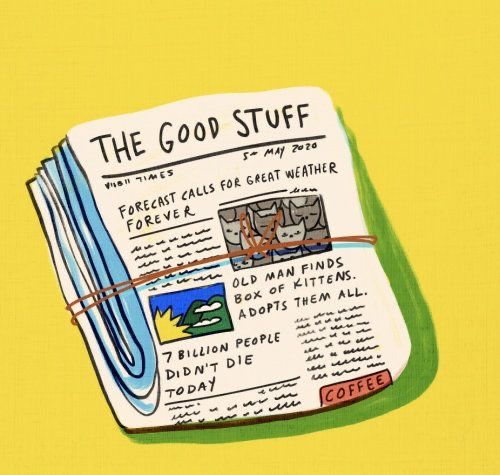 THE GOOD STUFF
TIMES
5TH MAY 2020
FORECAST CALLS FOR GREAT WEATHER
FOREVER
OLD MAN FINDS
BOX OF KITTENS.
ADOPTS THEM ALL.
7 BILLION PEOPLE
DIDN'T DIE
TODAY
COFFEE